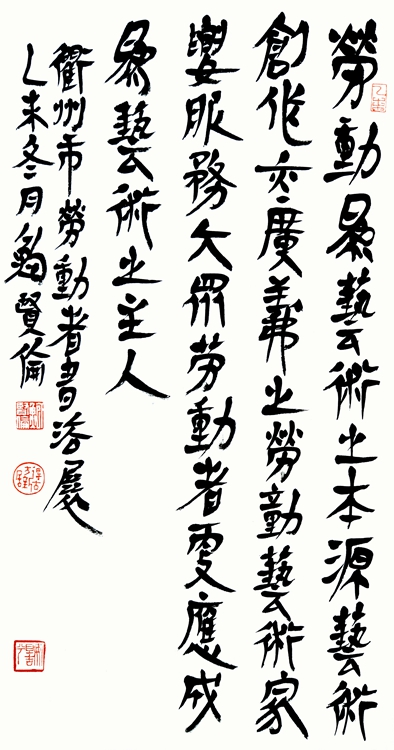 勞動爲藝術之本源藝術
創作亦廣義之勞動藝術家
要服務大眾勞動者更應成
爲藝術之主人
衢州市勞動者書法展
乙未冬月鮑賢倫